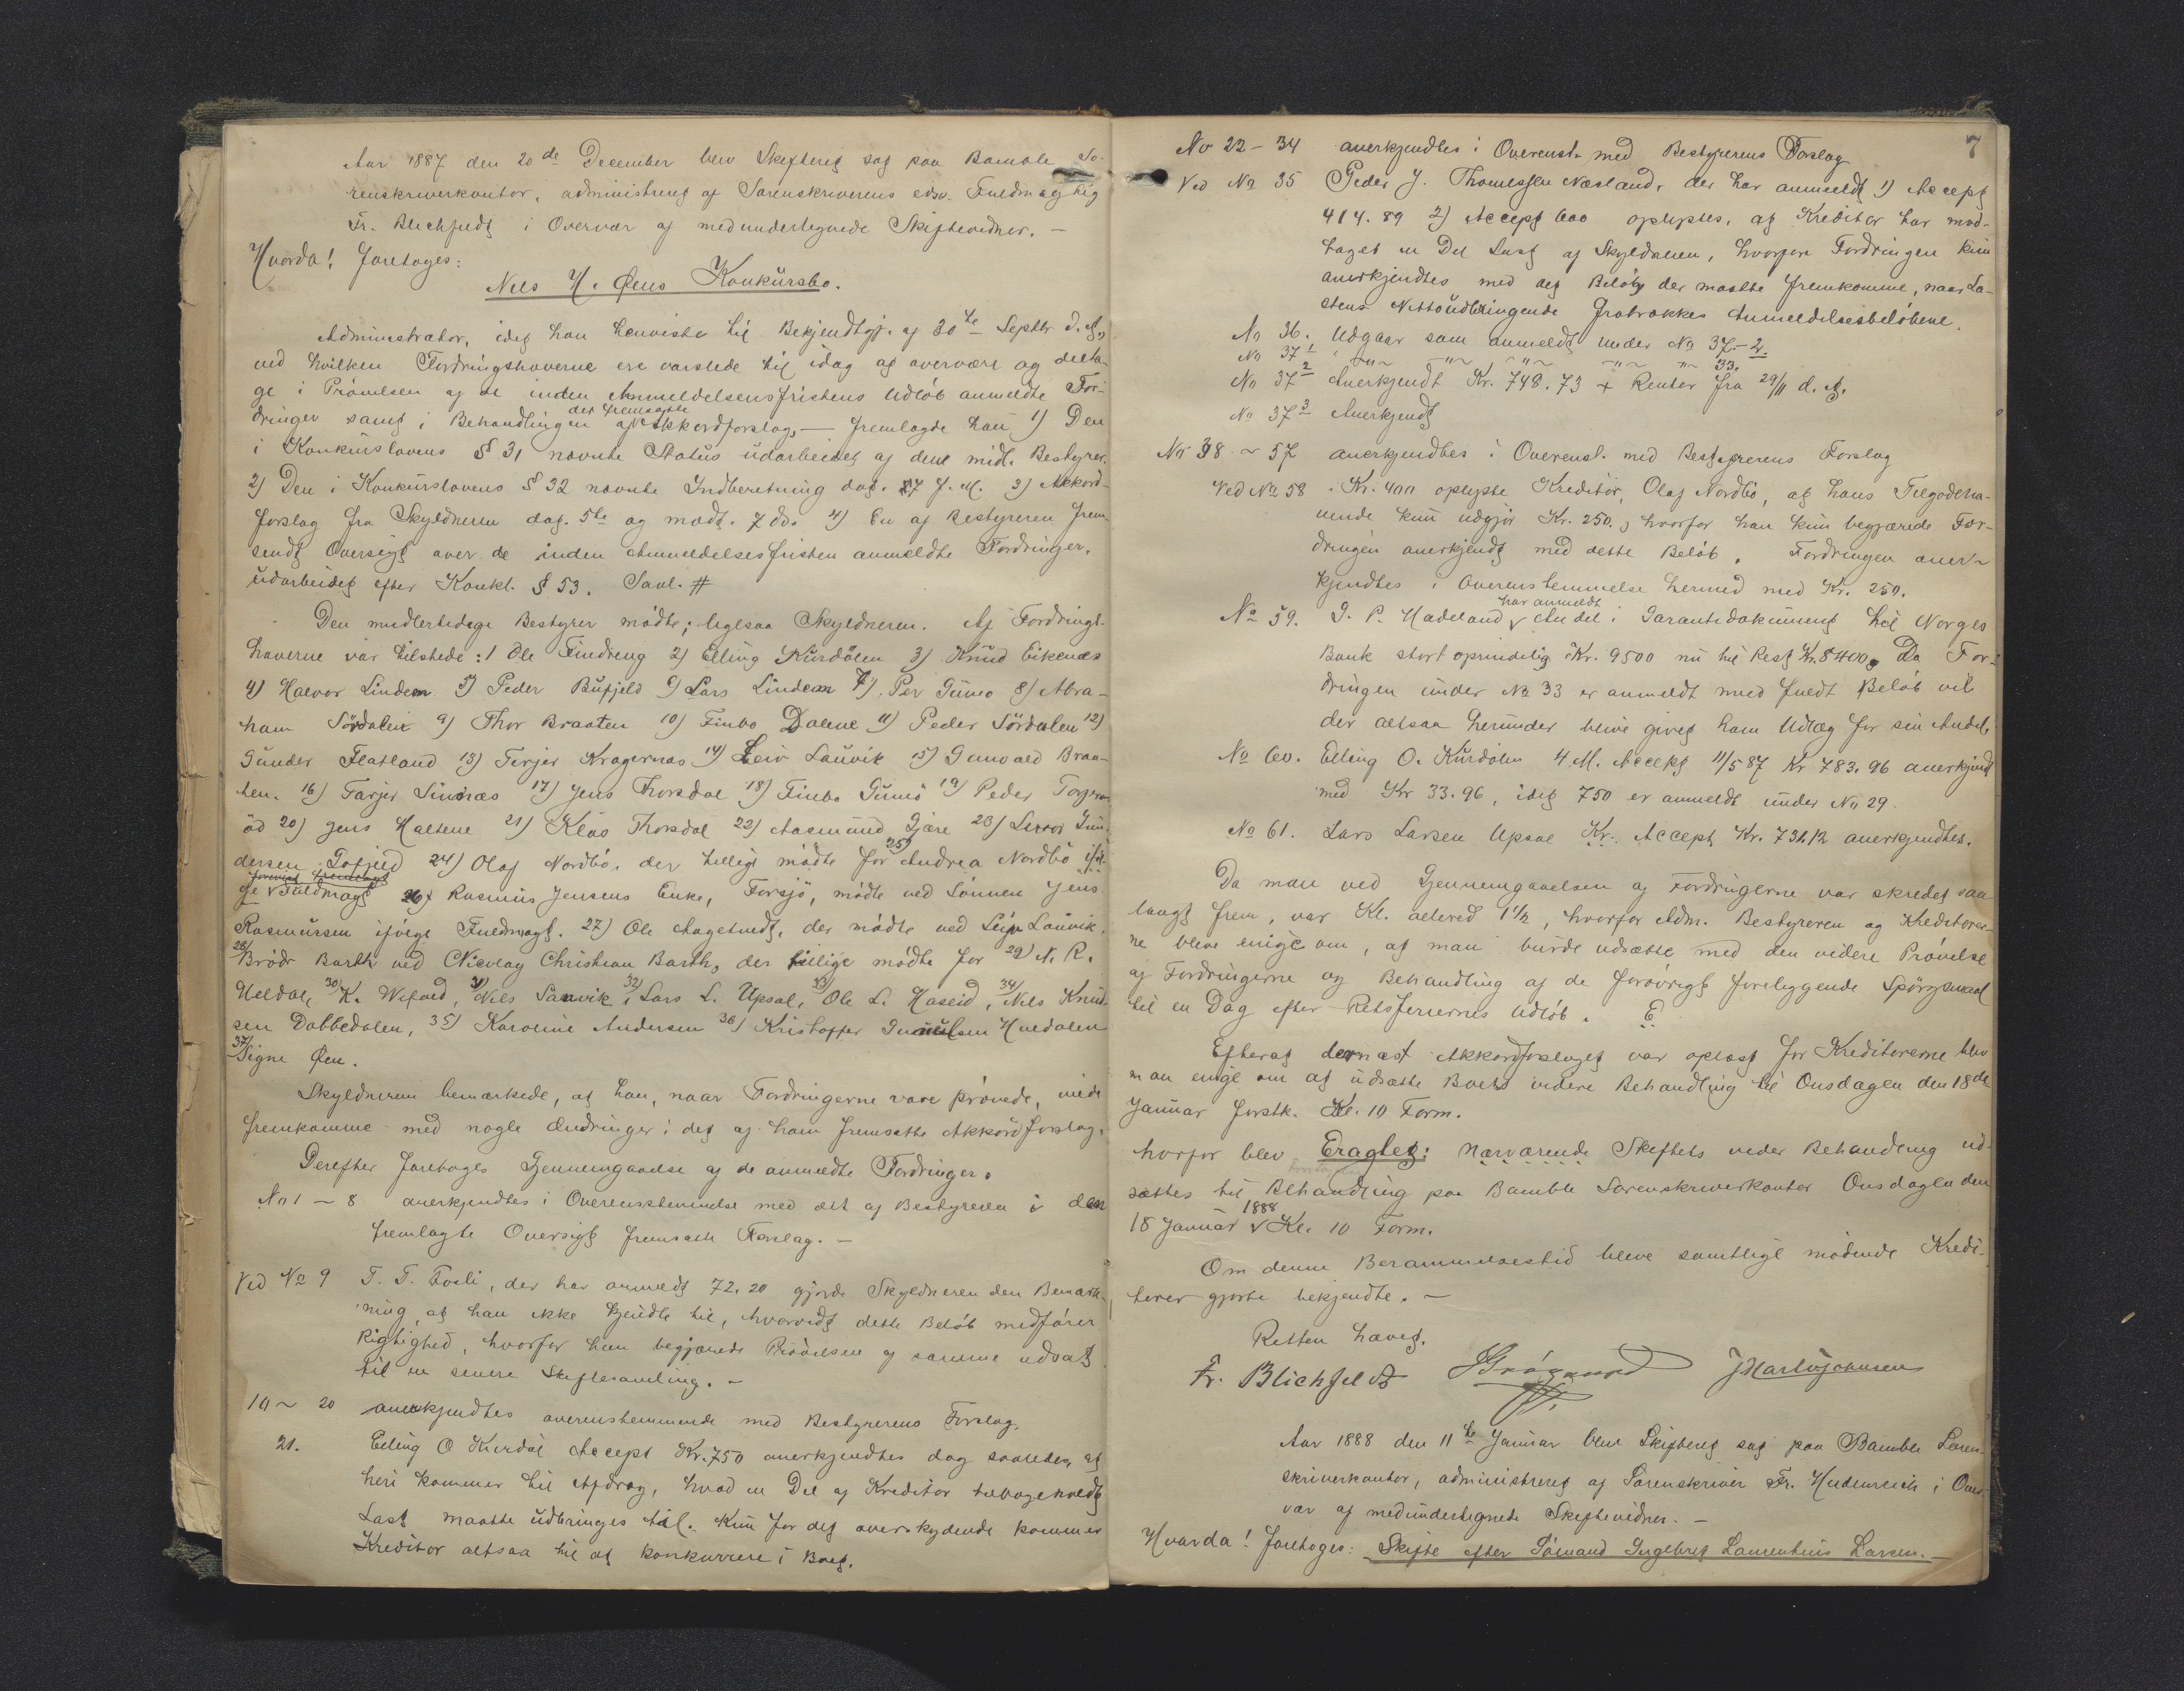 Aar 1887 den 20de December blev Skifteret sat paa Bamble So-
renskriverkontor, administreret af Sorenskriverens edsv. Fuldmægtig
Fr. Blichfeldt i Overvær af medundertegnede Skiftevidner. —
Hvorda! Foretoges:
Nils H. Øens Konkursbo.
Administrator, idet han henviste til Bekjendtgj. af 30te Septbr d. A.,
ved hvilken Fordringshaverne ere varslede til idag at overvære og delta-
ge i Prøvelsen af de inden Anmeldelsesfristens Udløb anmeldte For-
dringer samt i Behandlingen af det fremsatte Akkordforslag, — fremlagde han 1) Den
i Konkurslovens § 31 nævnte Status udarbeidet af den midl. Bestyrer.
2) Den i Konkurslovens § 32 nævnte Indberetning dat. 27 f. M. 3) Akkord-
forslag fra Skyldneren dat. 5te og modt. 7 ds. 4) En af Bestyreren frem-
sendt Oversigt over de inden Anmeldelsesfristen anmeldte Fordringer,
udarbeidet efter Konkl. § 53. Saal. #
Den midlertidige Bestyrer mødte; ligesaa Skyldneren. Af Fordrings-
haverne var tilstede: 1 Ole Findreng 2) Elling Kurdølen 3) Knud Eikenæs
4) Halvor Lindem 5) Peder Bufjeld 6) Lars Lindem 7) Per Gumø 8) Abra-
ham Sørdalen 9) Thor Braaten 10) Finbo Dalene 11) Peder Sørdalen 12)
Gunder Flatland 13) Terjer Kragernæs 14) Leiv Lauvik 15) Gunvald Braa-
ten. 16) Tarjer Sinnæs 17) Jens Thorsdal 18) Finbo Gumø 19) Peder
ød 20) Jens Haltene 21) Klas Thorsdal 22) Aasmund Gjære 23) Gun-
dersen 24) Olaf Nordbø, der tillige mødte for 25) Andrea Nordbø iføl-
ge Fuldmagt 26) Rasmus Jensens Enke, Forsjø, mødte ved Sønnen Jens
Rasmussen ifølge Fuldmagt. 27) Ole Aagetvedt, der mødte ved Leiv Lauvik,
28) Brødr Barth ved Nicolay Christian Barth, der tillige mødte for 29) N. R.
Ueldal, 30) K. 31) Nils Sanvik, 32) Lars L. Upsal, 33) Ole L. Haseid, 34) Nils Knud-
sen Dobbedalen, 35) Karoline Andersen 36) Kristoffer Hvedalen
37) Signe Øen.
Skyldneren bemærkede, at han, naar Fordringerne vare prøvede, vilde
fremkomme med nogle Ændringer i det af ham fremsatte Akkordforslag.
Derefter foretoges Gjennemgaaelse af de anmeldte Fordringer.
No 1 – 8 anerkjendtes i Overensstemmelse med det af Bestyreren i den
fremlagte Oversigt fremsatte Forslag. —
Ved No 9 T. T. Fosli, der har anmeldt 72.20 gjorde Skyldneren den Bemærk-
ning, at han ikke kjendte til, hvorvidt dette Beløb medfører
Rigtighed, hvorfor han begjærede Prøvelsen af samme udsat
til en senere Skiftesamling. —
10 ~ 20 anerkjendtes overenstemmende med Bestyrerens Forslag.
21. Elling O Kurdøl Accept Kr. 750 anerkjendtes dog saaledes, at
heri kommer til Afdrag, hvad en Del af Kreditor tilbageholdt
Last maatte udbringes til. Kun for det overskydende kommer
Kreditor altsaa til at konkurrere i Boet.
7
No 22 – 34 anerkjendtes i Overenst. med Bestyrerens Forslag
Ved No 35 Peder J. Thomessen Næsland, der har anmeldt 1) Accept
414.89 2) Accept 600 oplystes, at Kreditor har mod-
taget en Del Last af Skyldneren, hvorfor Fordringen kun
anerkjendtes med det Beløb, der maatte fremkomme, naar La-
stens Nettoudbringende fratrækkes Anmeldelsesbeløbene.
No 36. Udgaar som anmeldt under No 37–2.
No 37 1 — " — — " — — " — — " — 33.
No 37 2 Anerkjendt Kr. 748.73 + Renter fra 29/11 d. A.
No 37 3 Anerkjendt
No 38 ~ 57 anerkjendtes i Overenst. med Bestyrerens Forslag
Ved No 58. Kr. 400 oplyste Kreditor, Olaf Nordbø, at hans Tilgodeha-
vende kun udgjør Kr. 250., hvorfor han kun begjærede For-
dringen anerkjendt med dette Beløb. Fordringen aner-
kjendtes i Overenstemmelse hermed med Kr. 250.
No 59. G. P. Hadeland har anmeldt Andel i Garantidokument til Norges
Bank stort oprindelig Kr. 9500 nu til Rest Kr. 8400. Da For-
dringen under No 33 er anmeldt med fuldt Beløb vil
der altsaa herunder blive givet ham Udlæg for sin Andel.
No 60. Elling O. Kurdølen 4 M. Accept 11/5 87 Kr 783.96 anerkjendt
med Kr 33.96, idet 750 er anmeldt under No 29.
No 61. Lars Larsen Upsal Kr. Accept Kr. 731.12 anerkjendtes.
Da man ved Gjennemgaaelsen af Fordringerne var skredet saa
langt frem, var Kl. allered 1 1/2, hvorfor Adm. Bestyreren og Kreditorer-
ne bleve enige om, at man burde udsætte med den videre Prøvelse
af Fordringerne og Behandling af de forøvrigt foreliggende Spørgsmaal
til en Dag efter Retsferiernes Udløb. E
Efterat dernæst Akkordforslaget var oplæst for Kreditorerne blev
man enige om at udsætte Boets videre Behandling til Onsdagen den 18de
Januar førstk. Kl. 10 Form.
hvorfor blev Eragtet: Nærværende Skiftets videre Behandling ud-
sættes til Behandling paa Bamble Sorenskriverkontor Onsdagen den
18 Januar 1888 Kl. 10 Form.
Om denne Berammelsestid bleve samtlige mødende Kredi-
torer gjorte bekjendte. —
Retten hævet.
Fr. Blichfeldt J Martin Johnsen
Aar 1888 den 11te Januar blev Skifteret sat paa Bamble Soren-
skriverkontor, administreret af Sorenskriver Fr. Hudenreich i Over-
vær af medundertegnede Skiftevidner. —
Hvorda! Foretoges: Skifte efter Sømand Ingebret Laurentius Larsen. —